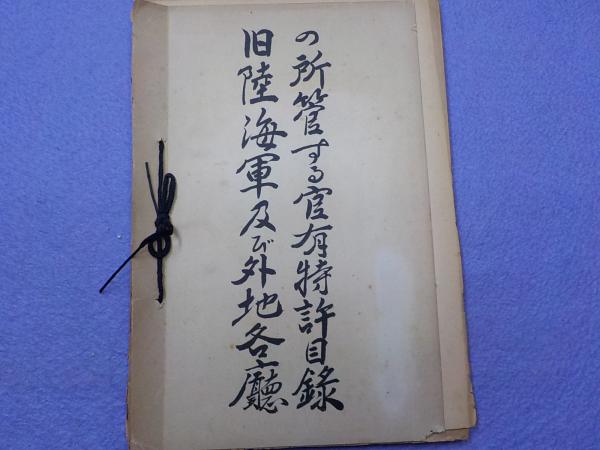 旧陸海軍及び外地各廳
の所管する官有特許目錄